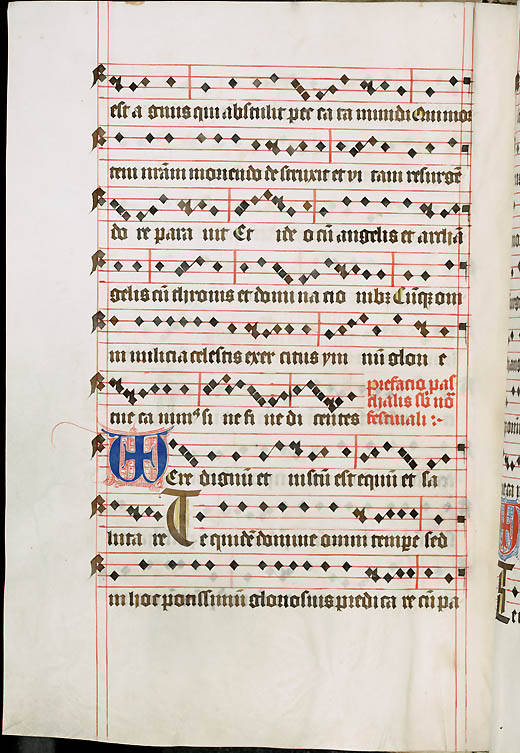 est a gnus qui abstulit pec ca ta mundi Qui mor
tem nr̄am moriendo de struxit et vi tam resurgē
do re para uit Et ide o cū angelis et archā
gelis cū thronis et domi na cio nibꝫ Cūqꝫ om
ni milicia celestis exer citus ym nū glori e
tue ca nimꝰ si ne fi ne di centes
prefacio pas
chalis
festiuali :-
Ere dignū et iustū est equū et sa
luta re Te quidē domine omni tempe sed
in hoc potissimū gloriosius predica re cū pa